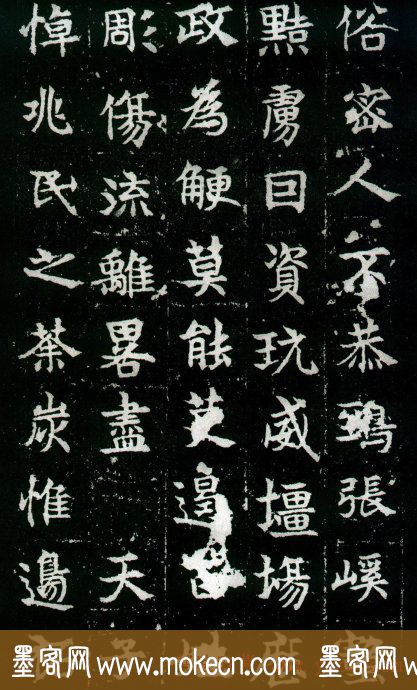 俗密人不恭鴟張嵠
黠虜曰資玩威壃埸
政為鯁莫能芟邊
彫傷流離畧盡天子
悼兆民之荼炭惟邊
墨客网 www.mokecn.com 墨客网 w